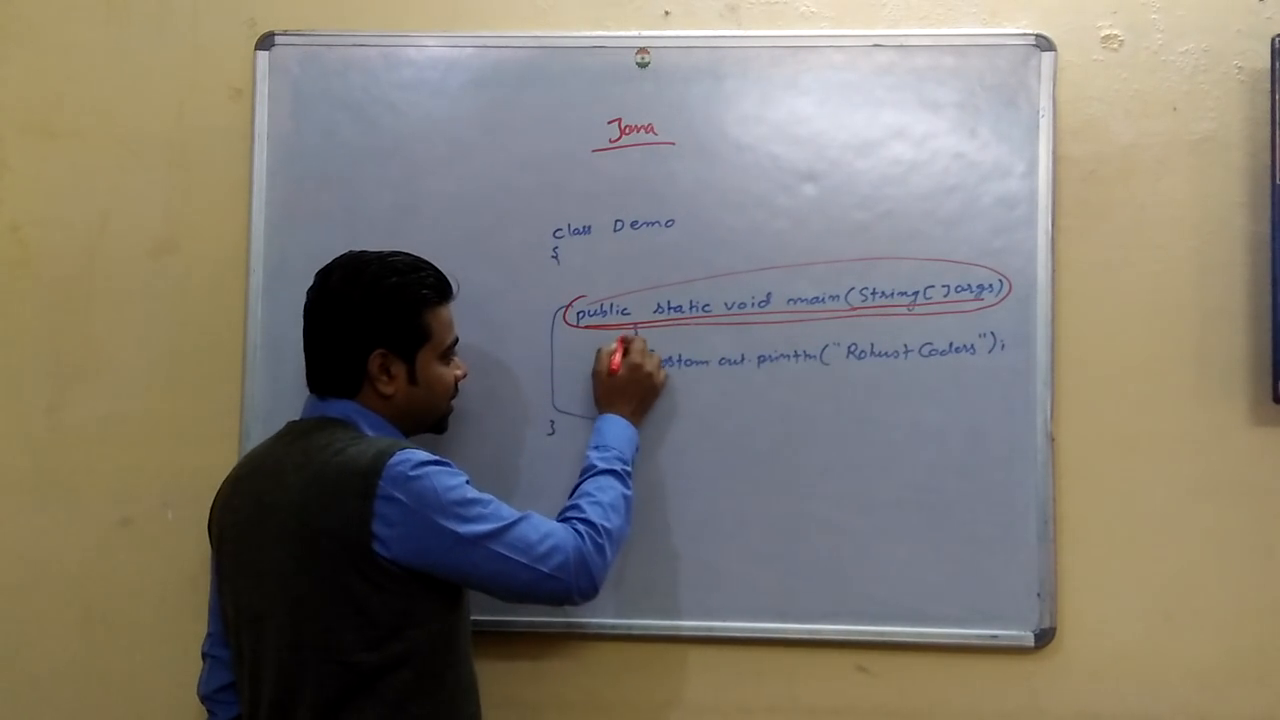 Java
class Demo
{
public static void main(String[]args)
System.out.println("Robust Coders");
}